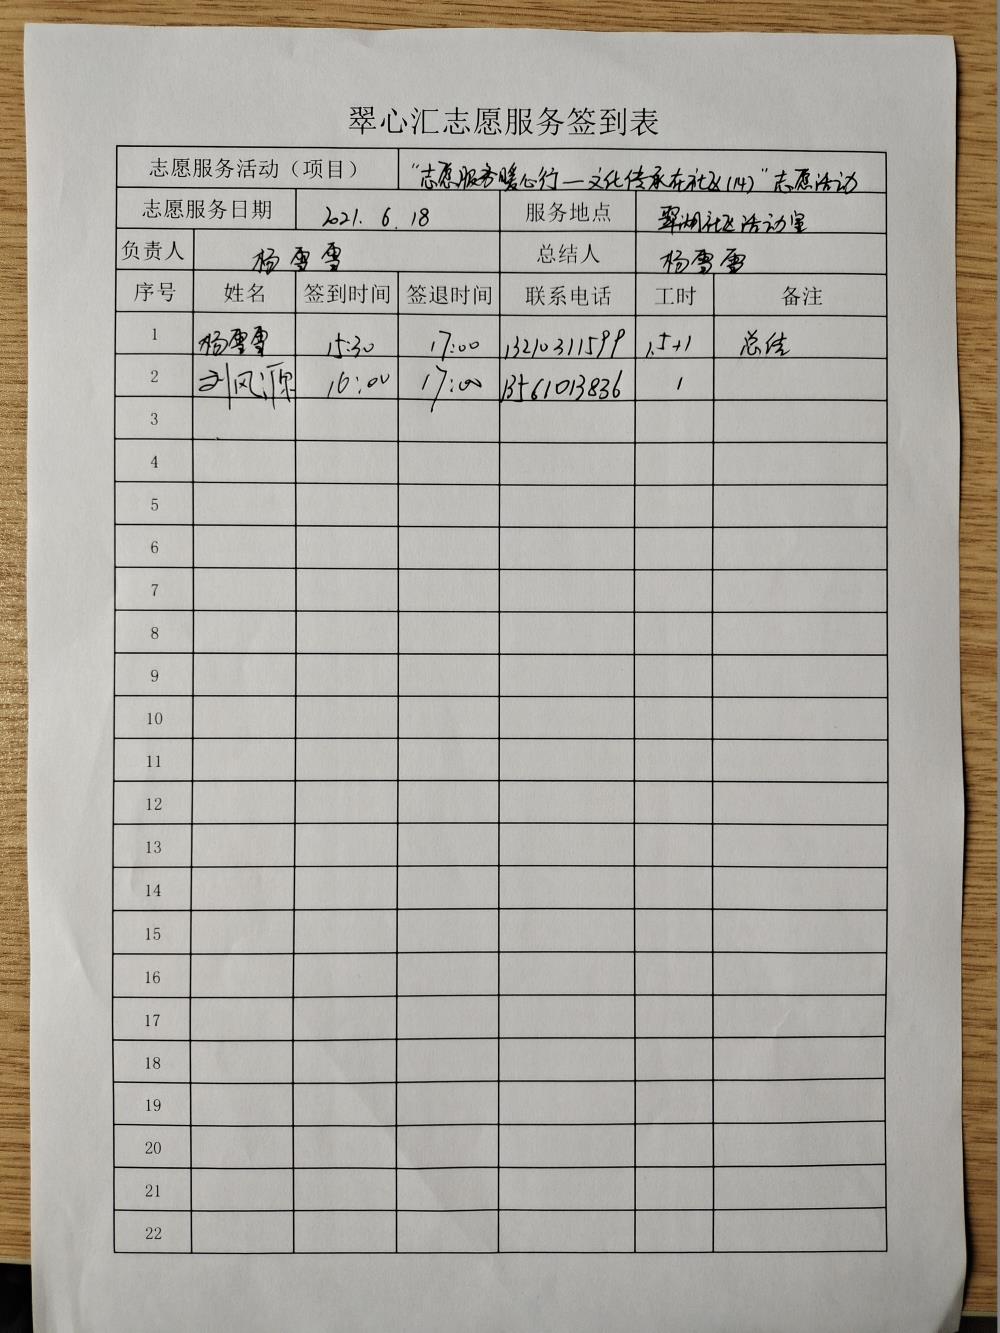 翠心汇志愿服务签到表
志愿服务活动（项目） “志愿服务暖心行—文化传承在社区(14)”志愿活动
志愿服务日期 2021. 6. 18 服务地点 翠湖社区活动室
负责人 杨雪雪 总结人 杨雪雪
序号 姓名 签到时间 签退时间 联系电话 工时 备注
1 杨雪雪 15:30 17:00 13210311599 1.5+1 总结
2 刘风源 16:00 17:00 13561013836 1
3
4
5
6
7
8
9
10
11
12
13
14
15
16
17
18
19
20
21
22